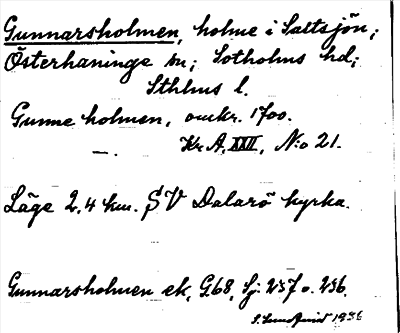 Gunnarsholmen, holme i Saltsjön;
Österhaninge sn; Sotholms hd;
Sthlms l.
Gunne holmen, omkr. 1700.
—. Kr. A, XXII, N:o 21.
Läge 2,4 km. SV Dalarö kyrka.
Gunnarsholmen ek, G68, Sj: 237 o. 236.
1936